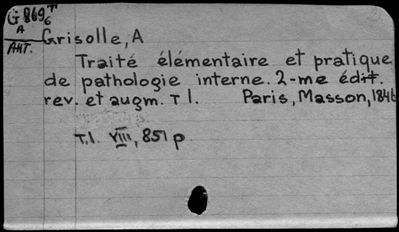 G 869т
6
A
Ант.
Grisolle, A
Traité élémentaire et pratique
de pathologie interne. 2-me édit.
rev. et augm. T 1. Paris, Masson, 1846
T.1. VIII, 851 p